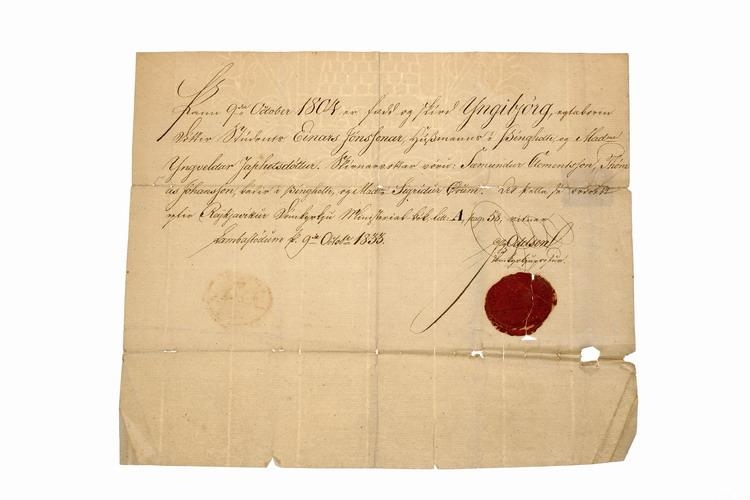 Þann 9da October 1804 er fædd og skírd Yngibjörg, egtaboren
dótter Students Einars Jónssonar, Húsmanns í Þingholti, og Madme
Yngveldar Japhetsdóttur. Skírnarvottar vóru: Sæmundur Clementsson, Thóm
as Jóhansson, báder í Þingholti, og Madme Sigrídur
epter Reykjavíkur Domkyrkju Ministerial-bók Litt. A, pag. 33, vitnar
Lambastödum þ. 9da Octobr 1833.
Oddsen
Domkyrkjuprestur.